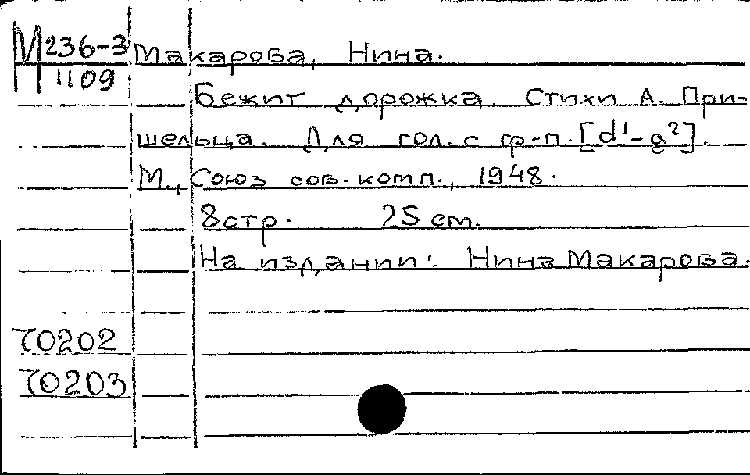 М236-3
1109
Макарова, Нина.
Бежит дорожка. Стихи А. При-
шельца. Для гол. с ф-п. [d¹-g²].
М., Союз сов. комп., 1948.
8 стр. 25 см.
На издании: Нина Макарова.
70202
70203